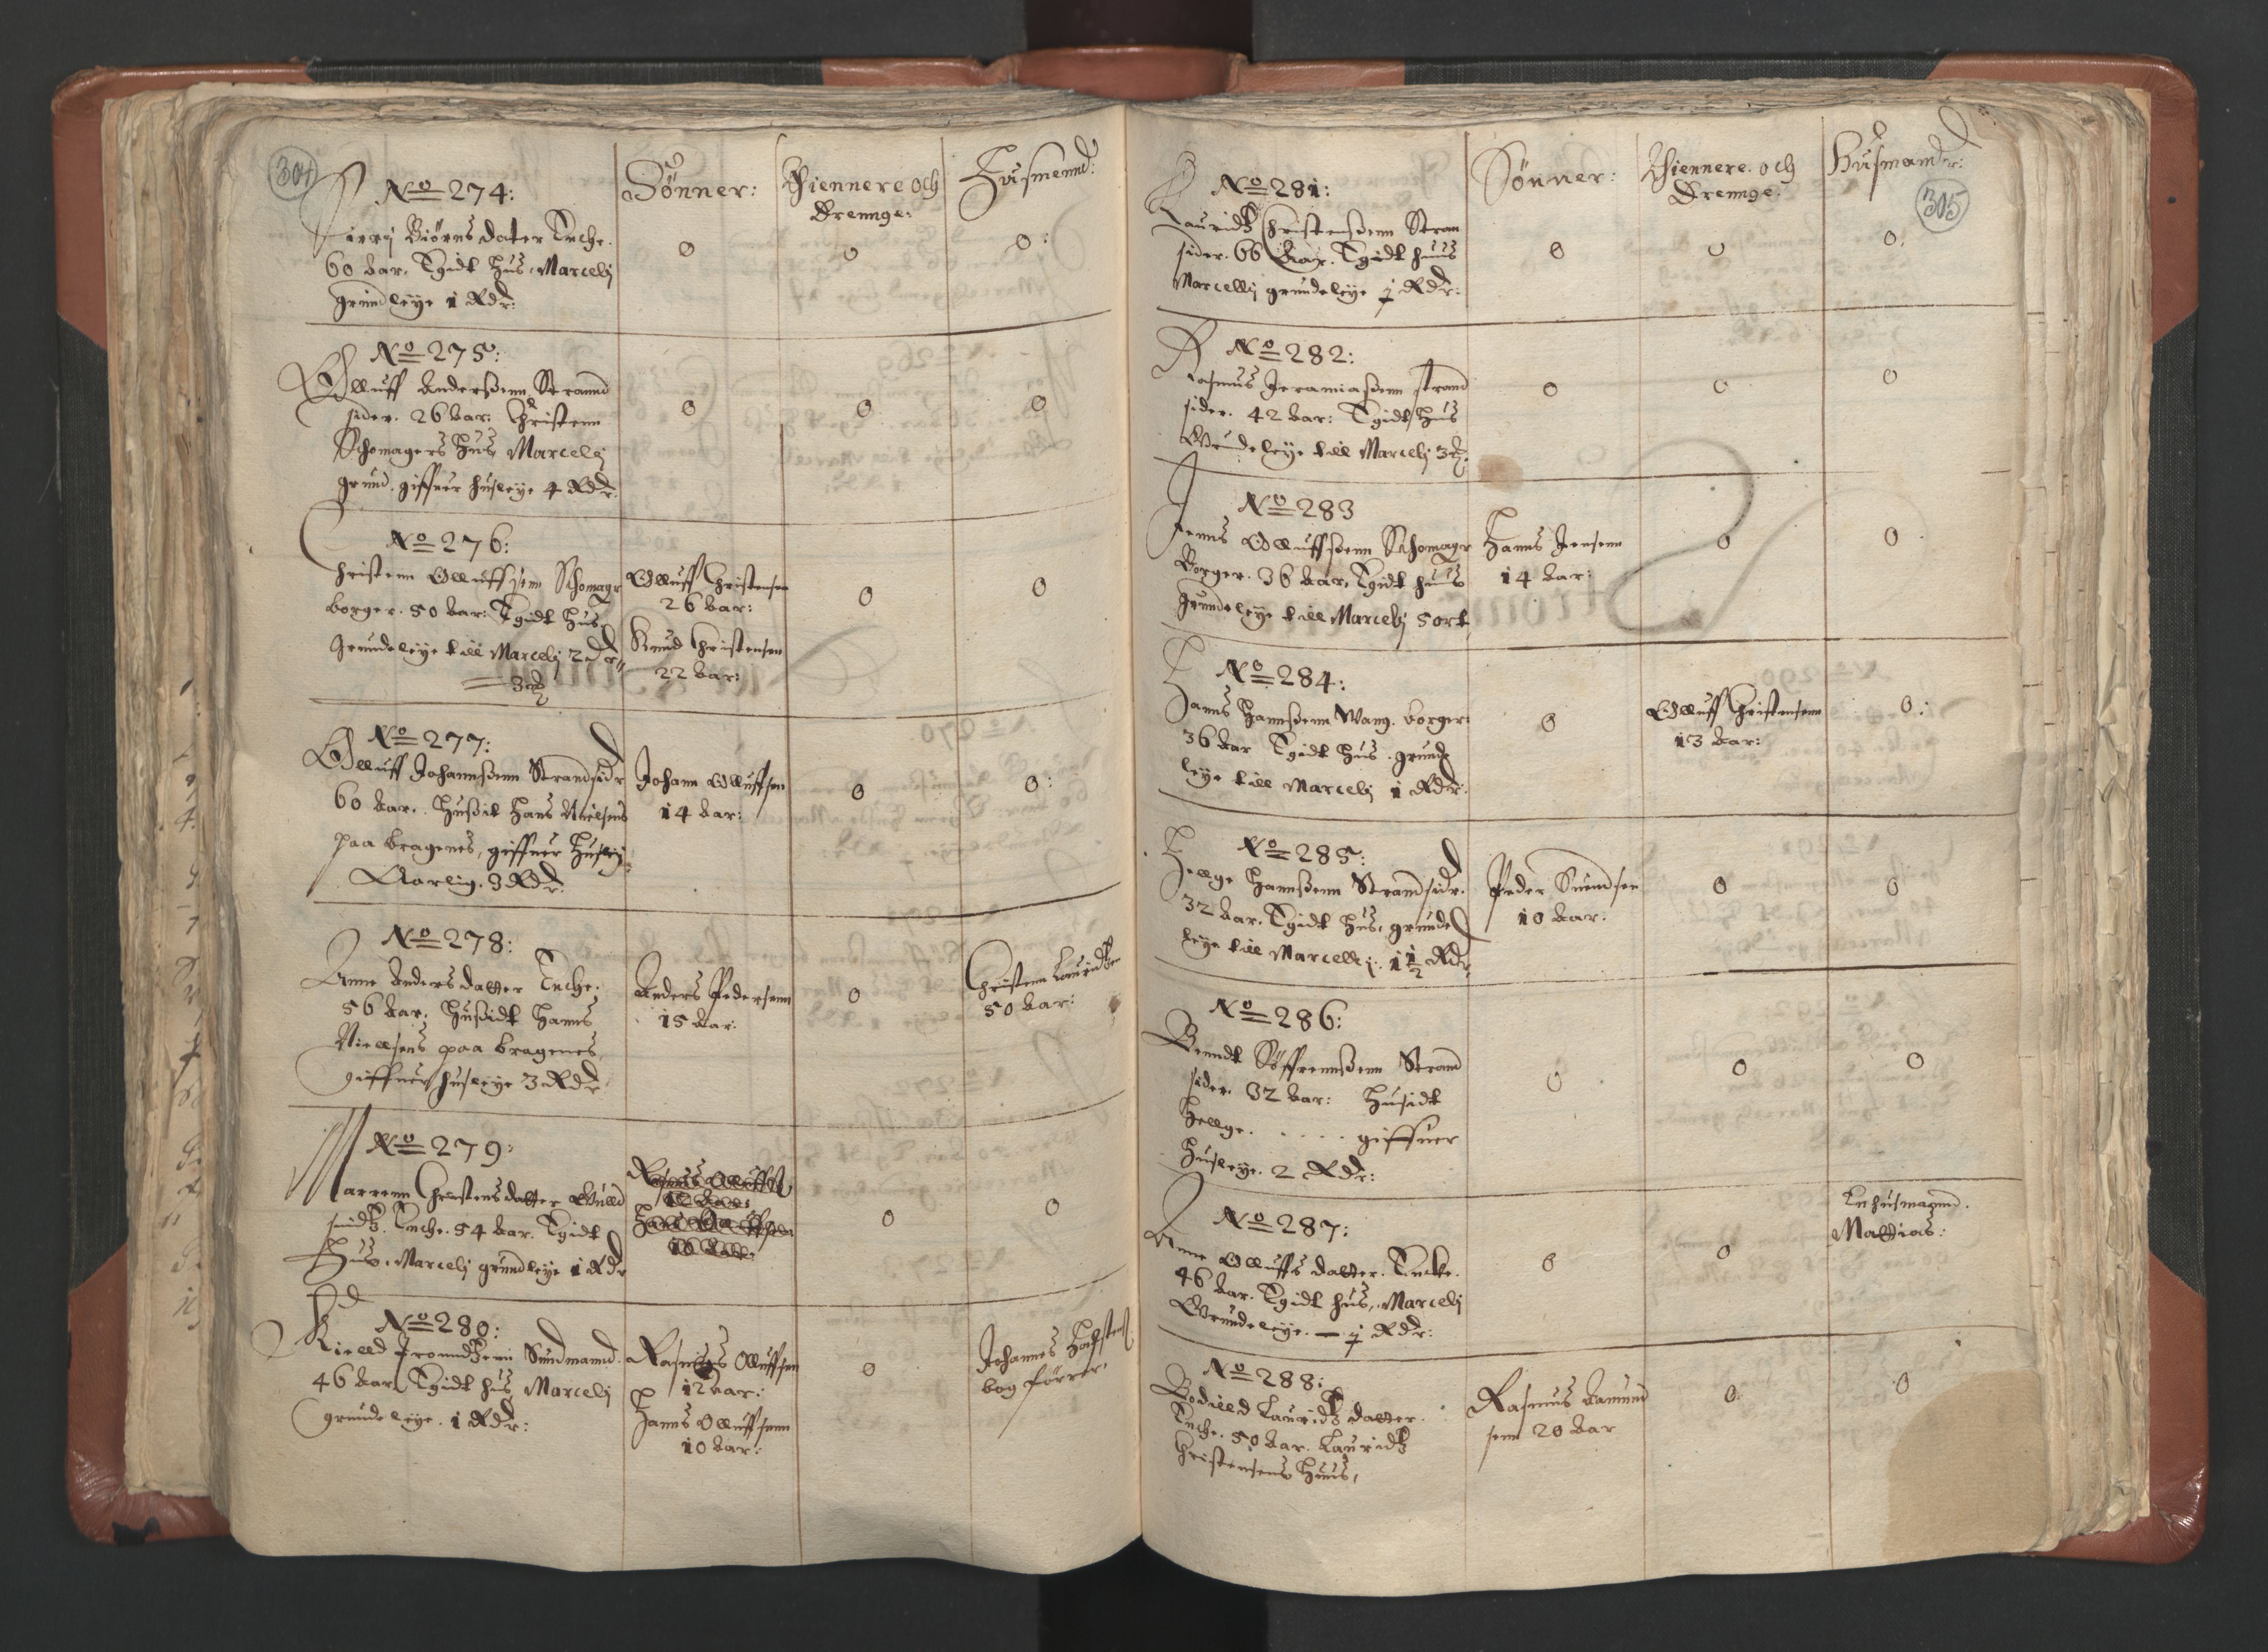 304
No 274:
Sønner:
Thiennere och
Drennge:
Husmennd:
Birgj Biørns dater Encke.
60 Aar. Egidt Hus, Marcelj
grund leye 1 Rdr:
0
0
0:
No 275:
Olluff Anderssenn Strannd
sider. 26 Aar: Christenn
Schomagers Hus, Marcelj
grund, giffuer husleye 4 Rdr.
0
0
0
No 276:
Christenn Olluffsenn Schomagr
borger. 50 Aar: Egidt Hus,
Grundeleye till Marcelj 2 dr
Olluff Christensen
26 Aar:
Knud Christensen
22 Aar:
0
0
No 277:
Olluff Johannssenn Strandsidr
60 Aar. Hussit Hans Nielsens
paa bragenes, giffuer Husleye
Aarlig. 3 Rdr.
Johann Olluffsen
14 Aar:
0
0:
No 278:
Anne Anders datter Encke.
56 Aar. Hussidt Hanns
Niellsens paa bragenes,
giffuer husleye 3 Rdr
Anders Pedersenn
15 Aar.
0
Christenn Lauridtzen
50 Aar:
No 279:
Marenn Christens datter Gulld
smidtz. Encke. 54 Aar. Egidt
Hus. Marcelj grundleye 1 Rdr
0
0
No 280:
Kield Tronndtzenn Sundmannd.
46 Aar. Egidt hus Marcelj
grundeleye. 1 Rdr:
Rasmus Olluffsen
12 Aar:
Hanns Olluffsenn
10 Aar:
0
Johannes
bog førrer.
305
No 281:
Sønner:
Thiennere. och
Drennge.
Husmander:
Lauridtz Christenssenn Stran
sider. 66 Aar. Egidt huus
Marcellj grundeleye 1 Rdr:
0
0
0:
No 282:
Rasmus Jeramiassenn strand
sider. 42 Aar: Egidt hus
Grundeleye till Marcelj 3
0
0
0
No 283
Jenns Olluffssenn Schomagr
Borger. 36 Aar, Egidt huus
Grundeleye till Marcelj 5 ort
Hanns Jensenn
14 Aar:
0
0
No 284:
Hanns Hannssenn Wang. borger:
36 Aar Egidt hus. grund
leye till Marcelj 1 Rdr:
0
Olluff Christensenn
13 Aar:
0:
No 285:
Hellge Hannssenn Strandsidr.
32 Aar. Egidt hus, grunde
leye till Marcellj. 1 1/2 Rdr,
Peder Suendsen
10 Aar.
0
0
No 286:
Benndt Søffrennssenn Strand
sider. 32 Aar: Husidt
Hellge. . . . . giffuer
Husleye. 2 Rdr:
0
0
0
No 287:
Anne Olluffs datter. Encke.
46 Aar. Egidt hus, Marcelj
Grundeleye. — 1 Rdr:
0
0
En husmannd.
Mattias:
No 288:
Bodilld Lauridtz datter.
Encke. 50 Aar. Lauridtz
Christensens Huus,
Rasmus Aamund
senn 20 Aar
0
0